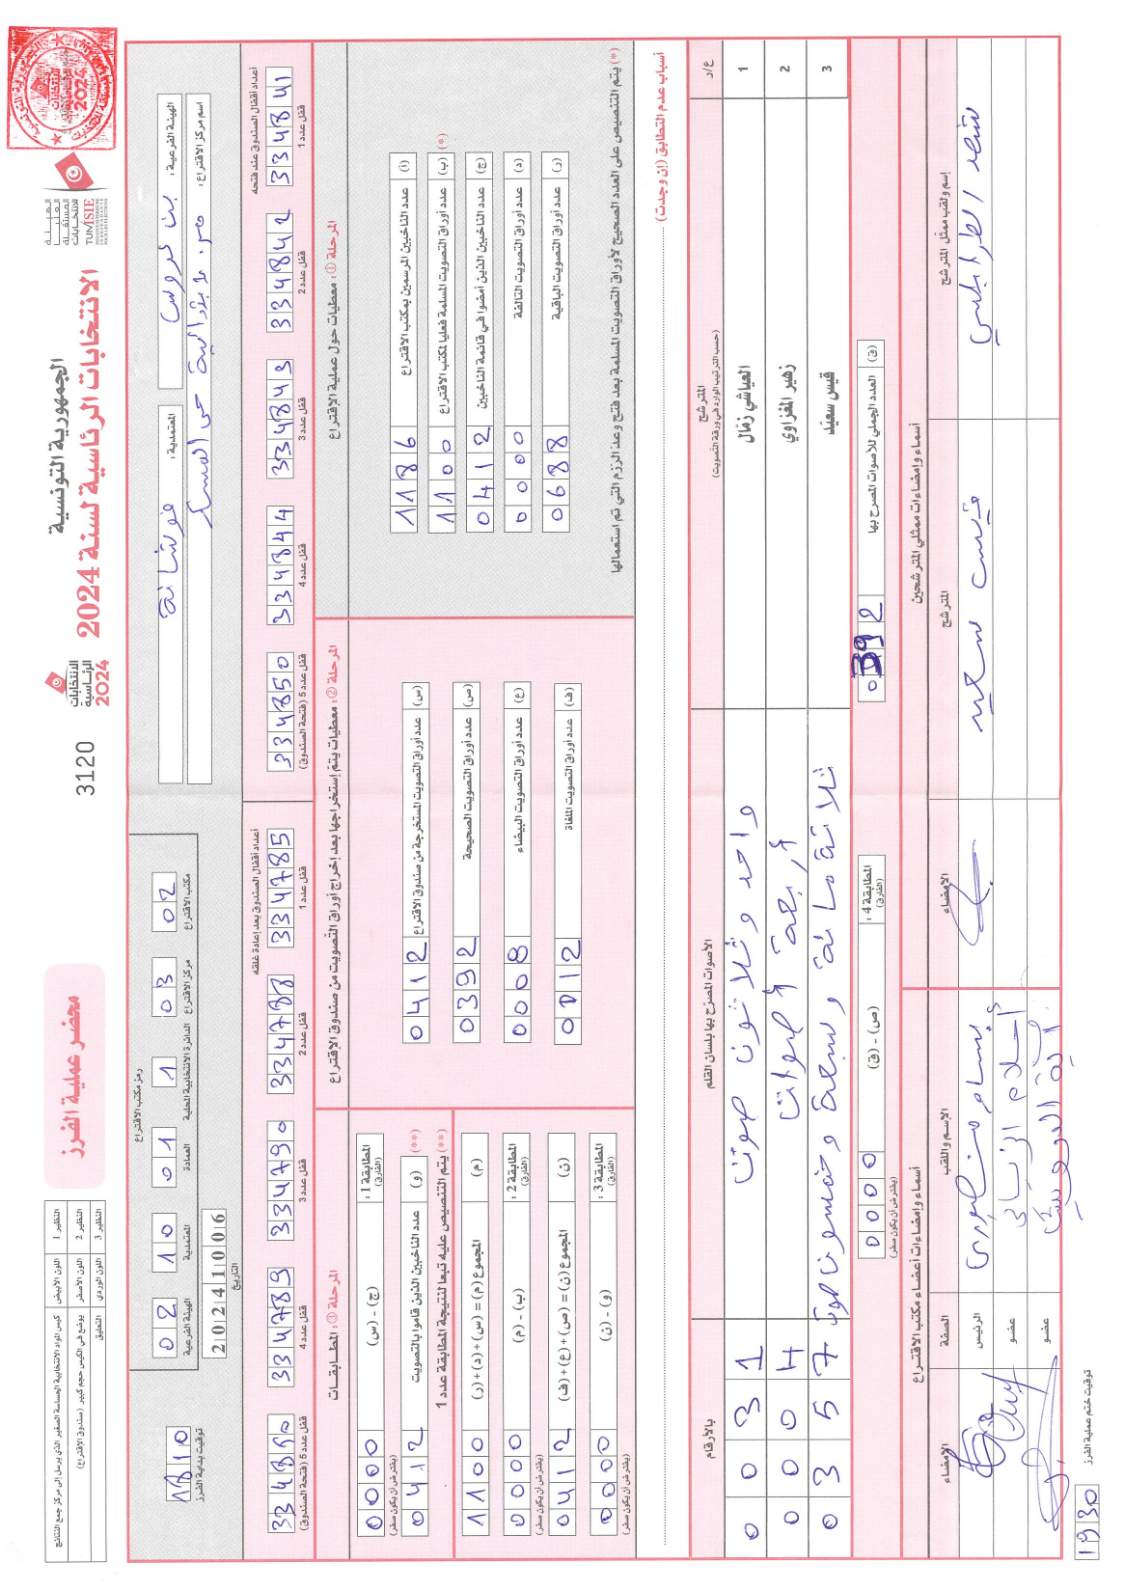 الجمهورية التونسية
الانتخابات الرئاسية لسنة 2024
الهيئة العليا المستقلة للانتخابات
TUNISIE
الانتخابات الرئاسية 2024
3120
محضر عملية الفرز
النظير 1 اللون الأبيض كيس المواد الانتخابية الحساسة الصغير الذي يرسل إلى مركز جمع النتائج
النظير 2 اللون الأصفر يوضع في الكيس حجم كبير (صندوق الاقتراع)
النظير 3 اللون الوردي التعليق
الهيئة الفرعية: بن عروس
المعتمدية: فوشانة
اسم مركز الاقتراع:
رمز مكتب الاقتراع
مكتب الاقتراع 02
مركز الاقتراع 03
الدائرة الانتخابية المحلية 1
العمادة 01
المعتمدية 10
الهيئة الفرعية 02
التاريخ 20241006
توقيت بداية الفرز 1810
أعداد أقفال الصندوق عند فتحه
قفل عدد 1 334841
قفل عدد 2 334842
قفل عدد 3 334843
قفل عدد 4 334844
قفل عدد 5 (فتحة الصندوق) 334850
أعداد أقفال الصندوق بعد إعادة غلقه
قفل عدد 1 334785
قفل عدد 2 334788
قفل عدد 3 334790
قفل عدد 4 334789
قفل عدد 5 (فتحة الصندوق)
المرحلة ①: معطيات حول عملية الإقتراع
(أ) عدد الناخبين المرسمين بمكتب الاقتراع 1186
(ب) عدد أوراق التصويت المسلمة فعليا لمكتب الاقتراع 1100 (*)
(ج) عدد الناخبين الذين أمضوا في قائمة الناخبين 0412
(د) عدد أوراق التصويت التالفة 0000
(ر) عدد أوراق التصويت الباقية 0688
(*) يتم التنصيص على العدد الصحيح لأوراق التصويت المسلمة بعد فتح وعد الرزم التي تم استعمالها
المرحلة ②: معطيات يتم إستخراجها بعد إخراج أوراق التصويت من صندوق الإقتراع
(س) عدد أوراق التصويت المستخرجة من صندوق الاقتراع 0412
(ص) عدد أوراق التصويت الصحيحة 0392
(ع) عدد أوراق التصويت البيضاء 0008
(ف) عدد أوراق التصويت الملغاة 0012
المرحلة ③: المطابقات
المطابقة 1: (الفارق) (ج) - (س) 0000 (يفترض أن يكون صفر)
(**) (و) عدد الناخبين الذين قاموا بالتصويت 0412
(**) يتم التنصيص عليه تبعا لنتيجة المطابقة عدد 1
(م) المجموع (م) = (س)+(د)+(ر) 1100
المطابقة 2: (الفارق) (ب) - (م) 0000 (يفترض أن يكون صفر)
(ن) المجموع (ن) = (ص)+(ع)+(ف) 0412
المطابقة 3: (الفارق) (و) - (ن) 0000 (يفترض أن يكون صفر)
أسباب عدم التطابق (إن وجدت)
ع/ر المترشح (حسب الترتيب الوارد في ورقة التصويت) الأصوات المصرّح بها بلسان القلم بالأرقام
1 العياشي زمّال واحد وثلاثون صوتا 0031
2 زهير المغزاوي أربعة أصوات 0004
3 قيس سعيّد ثلاثة مائة وسبعة وخمسون صوتا 0357
(ق) العدد الجملي للأصوات المصرح بها 0392
المطابقة 4: (الفارق) (ص) - (ق) 0000 (يفترض أن يكون صفر)
أسماء وإمضاءات ممثلي المترشحين
إسم ولقب ممثل المترشح المترشح الإمضاء
الطرابلسي قيس سعيد
أسماء وإمضاءات أعضاء مكتب الاقتراع
الإسم واللقب الصفة الإمضاء
بسام منصوري الرئيس
أحلام الزياني عضو
عضو
توقيت ختم عملية الفرز 1930